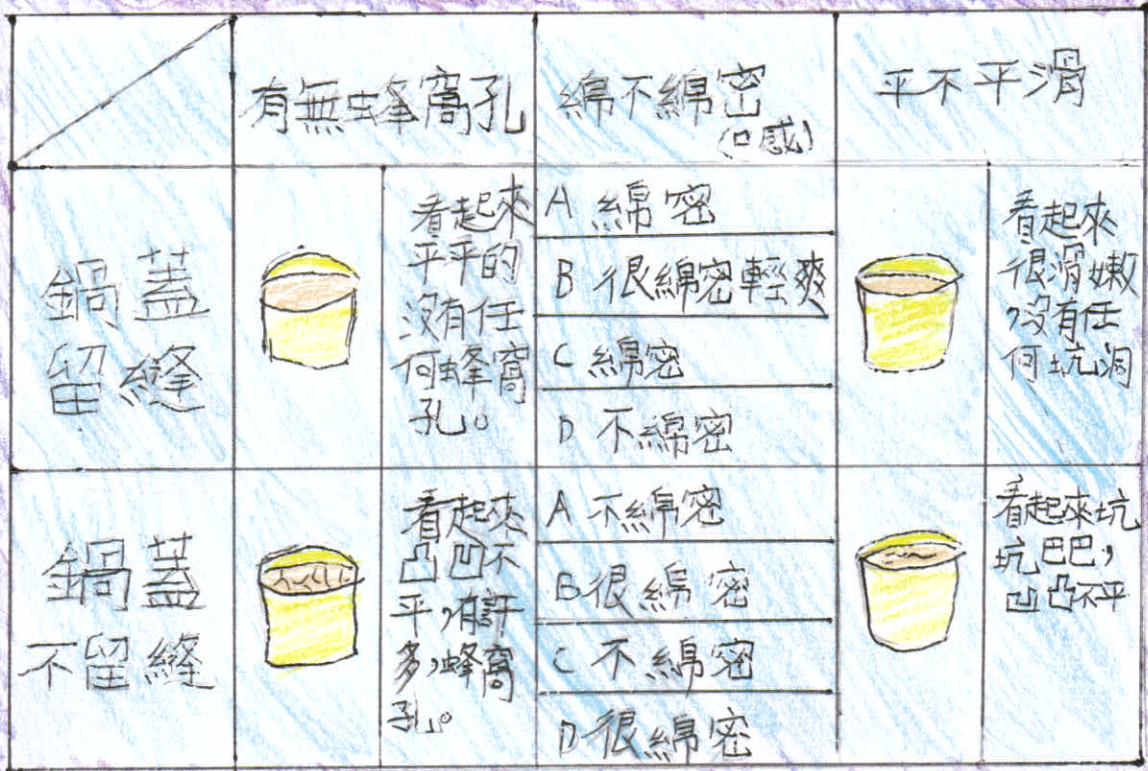 有無蜂窩孔
綿不綿密
(口感)
平不平滑
鍋蓋
留縫
看起來
平平的
沒有任
何蜂窩
孔。
A 綿密
B 很綿密輕爽
C 綿密
D 不綿密
看起來
很滑嫩
,沒有任
何坑洞
鍋蓋
不留縫
看起來
凸凹不
平,有許
多,蜂窩
孔。
A 不綿密
B 很綿密
C 不綿密
D 很綿密
看起來坑
坑巴巴,
凹凸不平